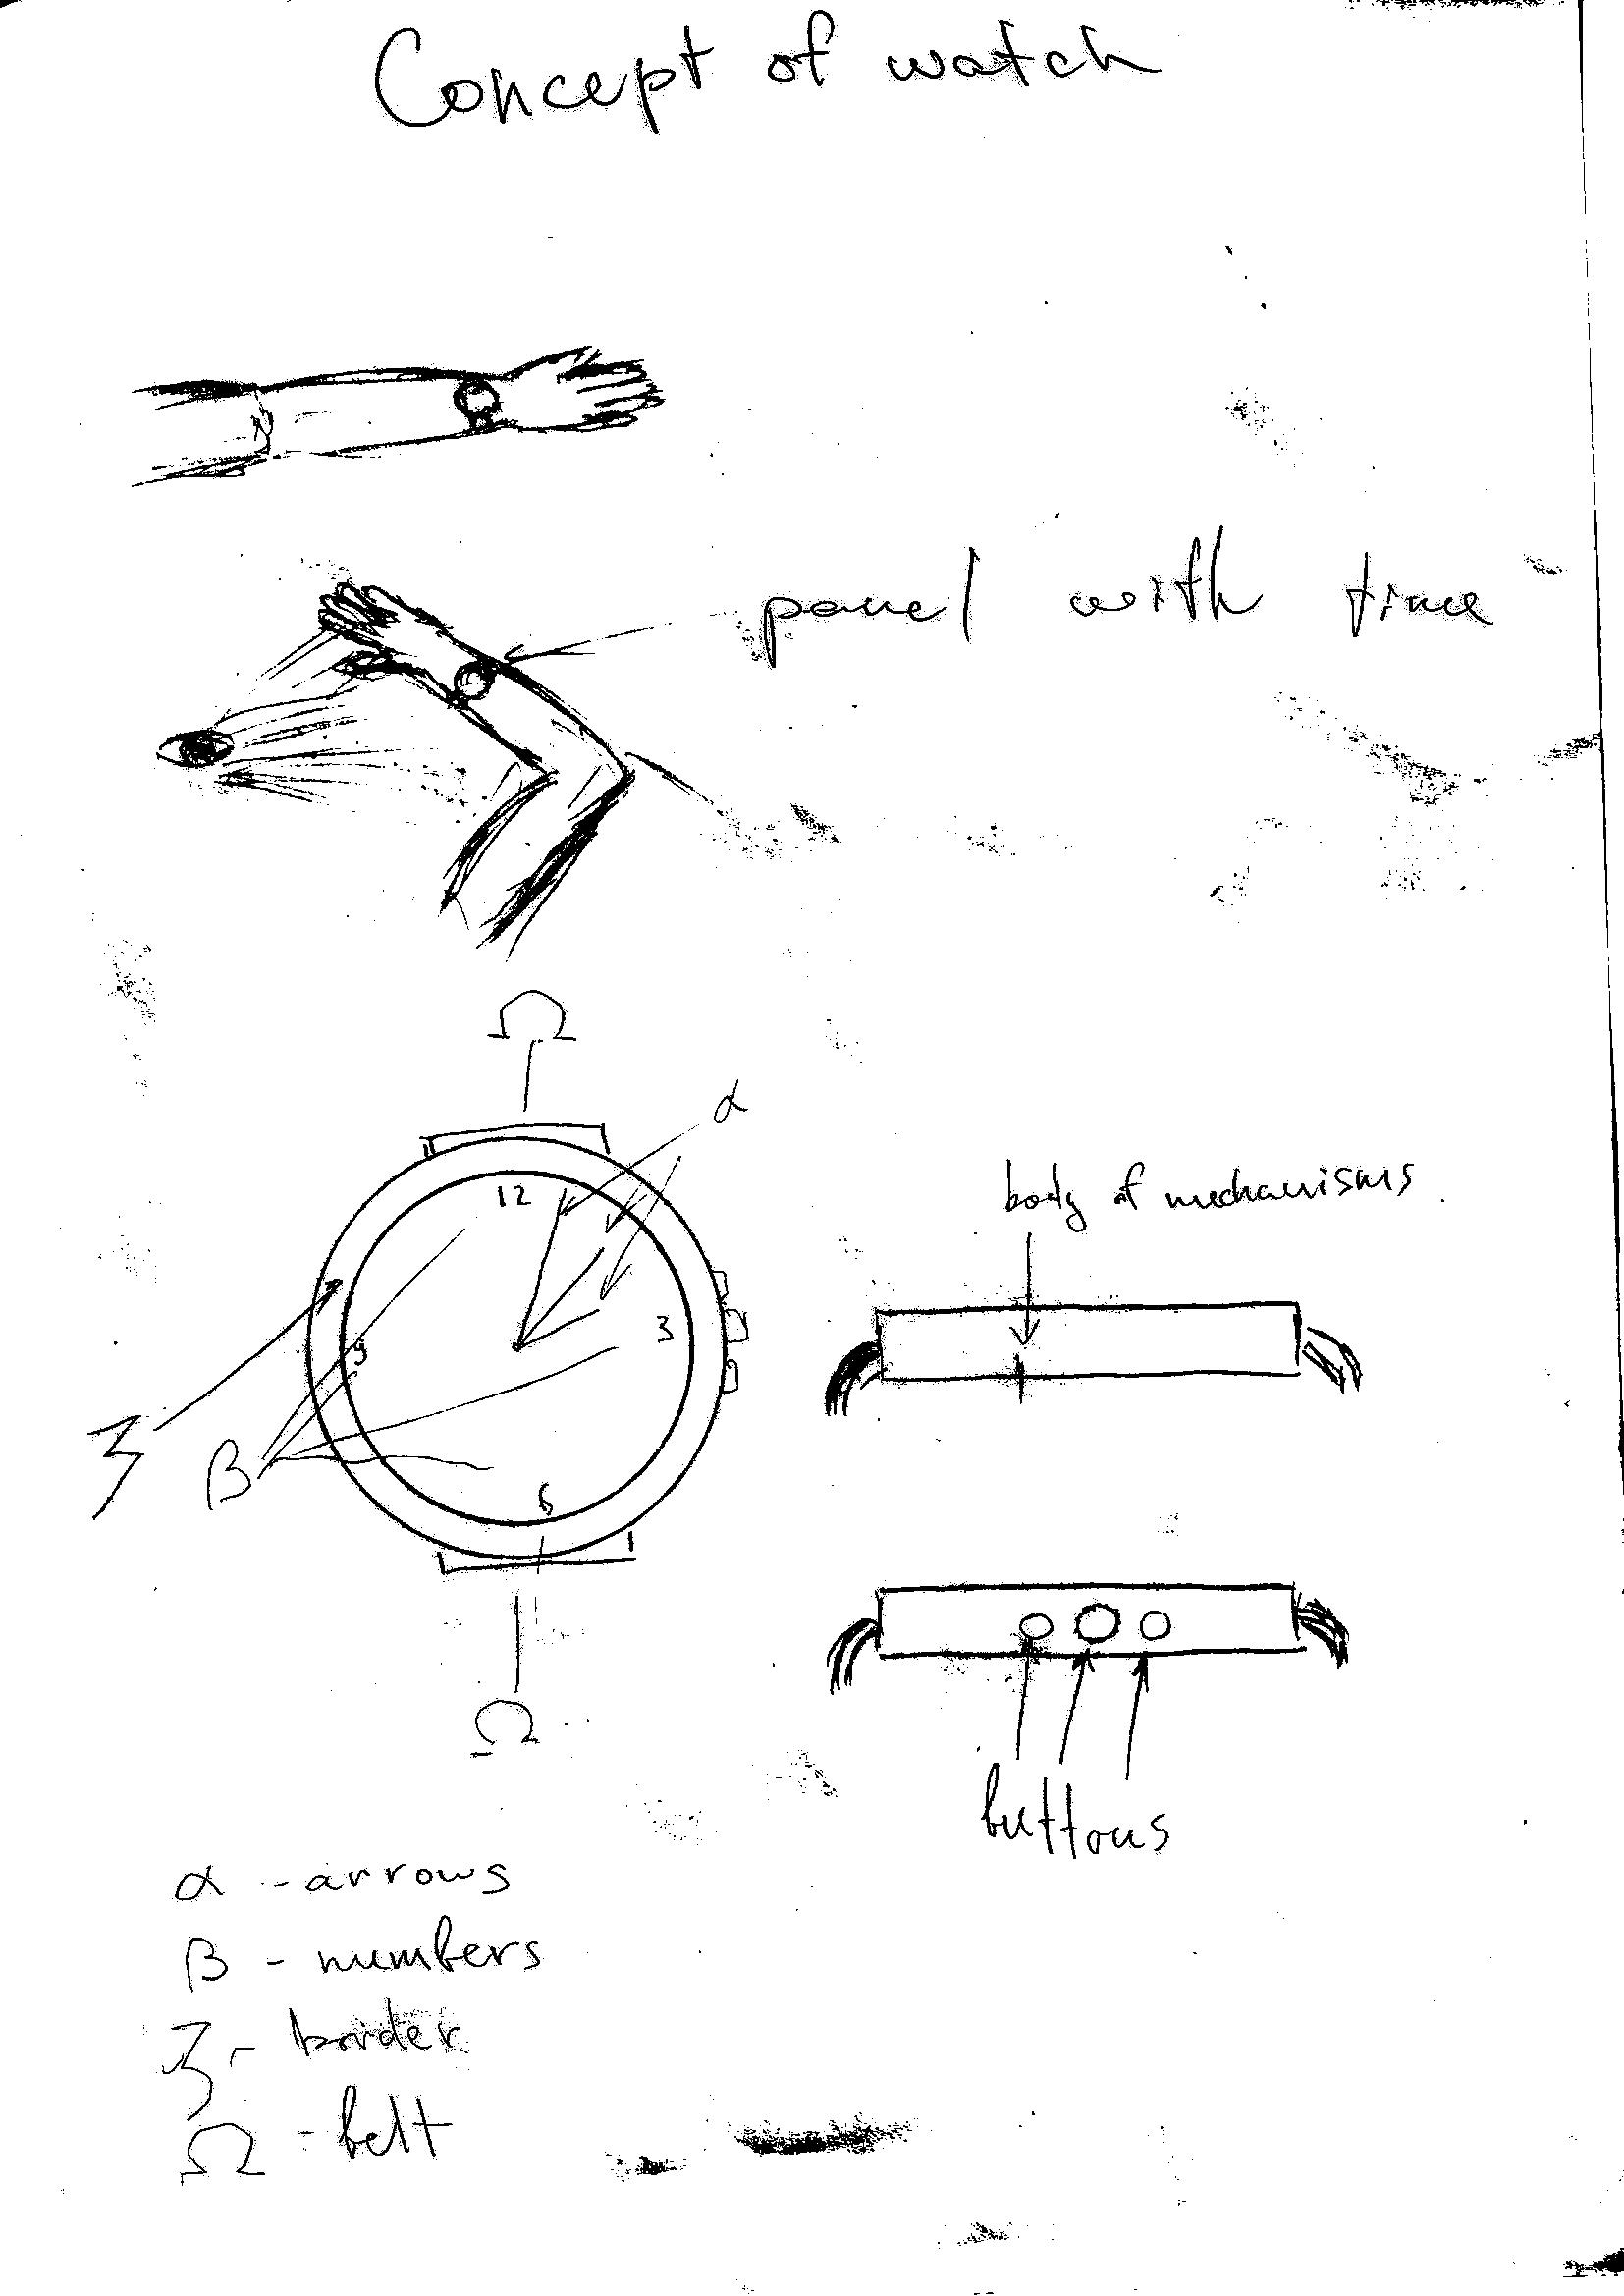 Concept of watch
panel with time
Ω
α
12
3
9
6
ζ
β
Ω
body of mechanisms
buttons
α - arrows
β - numbers
ζ - border
Ω - belt